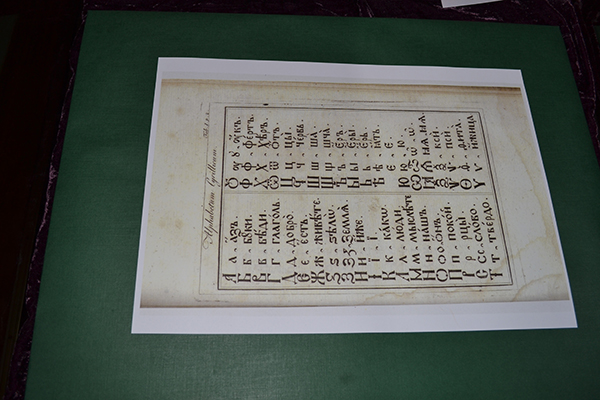 Alphabetum Cyrillicum
А а. АЗЪ.
Б б. БУКИ.
В в. ВѢДИ.
Г г. ГЛАГОЛЬ.
Д д. ДОБРО.
Є є. ЕСТЬ.
Ж ж. ЖИВѢТЕ.
Ѕ ѕ. ЅѢЛѠ.
З з. ЗЕМЛѦ.
И и. ИЖЕ.
І ї. І.
К к. КАКѠ.
Л л. ЛЮДИ.
М м. МЫСЛѢТЕ.
Н н. НАШЪ.
О о. ОНЪ.
П п. ПОКОЙ.
Р р. РЦЫ.
С с. СЛОВО.
Т т. ТВЕРДО.
Ѹ ѹ. ѸКЪ.
Ф ф. ФЕРТЪ.
Х х. ХѢРЪ.
Ѿ ѿ. ОТЪ.
Ц ц. ЦЫ.
Ч ч. ЧЕРВЬ.
Ш ш. ША.
Щ щ. ЩА.
Ъ ъ. ЕРЪ.
Ы ы. ЕРЫ.
Ь ь. ЕРЬ.
Ѣ ѣ. ІАТЬ.
Є є.
Ю ю.
Ѡ ѡ.
Ѯ ѯ. КСИ.
Ѱ ѱ. ПСИ.
Ѳ ѳ. ѲИТА.
Ѵ ѵ. ИЖИЦА